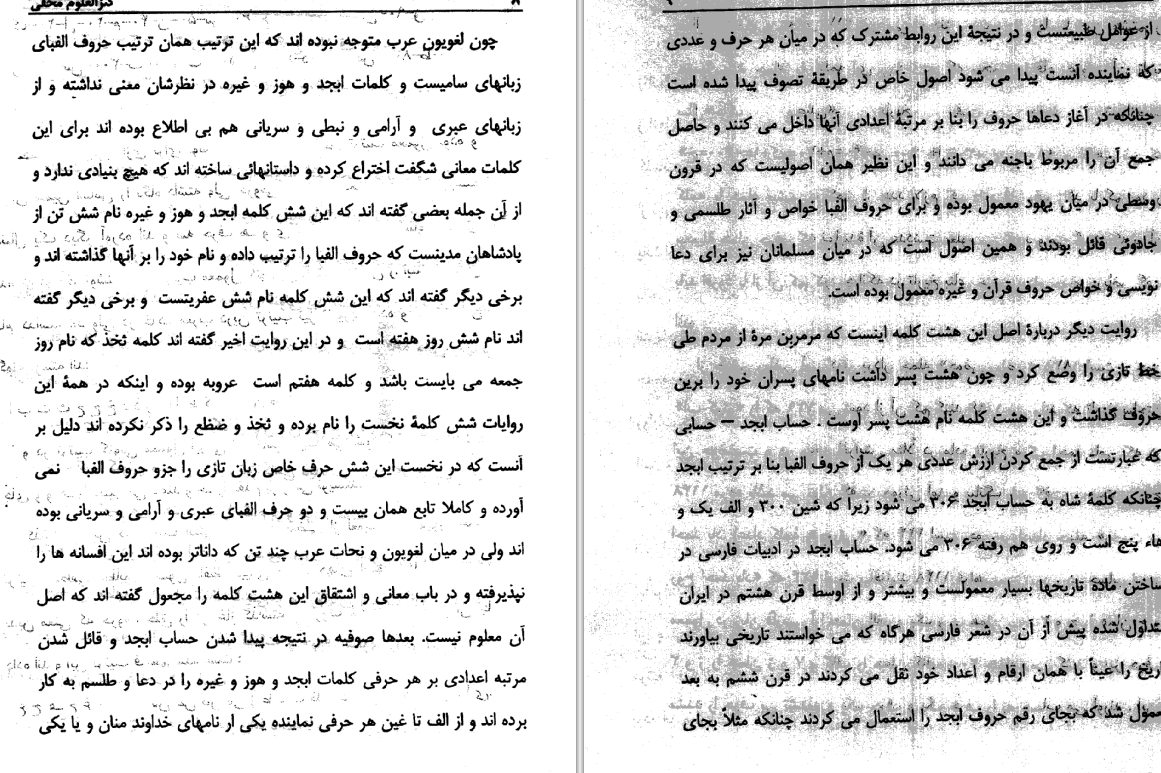 کنزالعلوم مخفی
۸
چون لغویون عرب متوجه نبوده اند که این ترتیب همان ترتیب حروف الفبای
زبانهای سامیست و کلمات ابجد و هوز و غیره در نظرشان معنی نداشته و از
زبانهای عبری و آرامی و نبطی و سریانی هم بی اطلاع بوده اند برای این
کلمات معانی شگفت اختراع کرده و داستانهائی ساخته اند که هیچ بنیادی ندارد و
از آن جمله بعضی گفته اند که این شش کلمه ابجد و هوز و غیره نام شش تن از
پادشاهان مدینست که حروف الفبا را ترتیب داده و نام خود را بر آنها گذاشته اند و
برخی دیگر گفته اند که این شش کلمه نام شش عفریتست و برخی دیگر گفته
اند نام شش روز هفته است و در این روایت اخیر گفته اند کلمه ثخذ که نام روز
جمعه می بایست باشد و کلمه هفتم است عروبه بوده و اینکه در همهٔ این
روایات شش کلمهٔ نخست را نام برده و ثخذ و ضظغ را ذکر نکرده اند دلیل بر
آنست که در نخست این شش حرف خاص زبان تازی را جزو حروف الفبا نمی
آورده و کاملا تابع همان بیست و دو حرف الفبای عبری و آرامی و سریانی بوده
اند ولی در میان لغویون و نحات عرب چند تن که داناتر بوده اند این افسانه ها را
نپذیرفته و در باب معانی و اشتقاق این هشت کلمه را مجعول گفته اند که اصل
آن معلوم نیست. بعدها صوفیه در نتیجه پیدا شدن حساب ابجد و قائل شدن
مرتبه اعدادی بر هر حرفی کلمات ابجد و هوز و غیره را در دعا و طلسم به کار
برده اند و از الف تا غین هر حرفی نماینده یکی ار نامهای خداوند منان و یا یکی
از عوامل طبیعتست و در نتیجهٔ این روابط مشترک که در میان هر حرف و عددی
که نماینده آنست پیدا می شود اصول خاص در طریقهٔ تصوف پیدا شده است
چنانکه در آغاز دعاها حروف را بنا بر مرتبهٔ اعدادی آنها داخل می کنند و حاصل
جمع آن را مربوط باجنه می دانند و این نظیر همان اصولیست که در قرون
وسطی در میان یهود معمول بوده و برای حروف الفبا خواص و آثار طلسمی و
جادوئی قائل بودند و همین اصول است که در میان مسلمانان نیز برای دعا
نویسی و خواص حروف قرآن و غیره معمول بوده است.
روایت دیگر دربارهٔ اصل این هشت کلمه اینست که مرمربن مرهٔ از مردم طی
خط تازی را وضع کرد و چون هشت پسر داشت نامهای پسران خود را برین
حروف گذاشت و این هشت کلمه نام هشت پسر اوست . حساب ابجد – حسابی
که عبارتست از جمع کردن ارزش عددی هر یک از حروف الفبا بنا بر ترتیب ابجد
چنانکه کلمهٔ شاه به حساب ابجد ۳۰۶ می شود زیرا که شین ۳۰۰ و الف یک و
هاء پنج است و روی هم رفته ۳۰۶ می شود. حساب ابجد در ادبیات فارسی در
ساختن مادهٔ تاریخها بسیار معمولست و بیشتر و از اوسط قرن هشتم در ایران
متداول شده پیش از آن در شعر فارسی هرگاه که می خواستند تاریخی بیاورند
اریخ را عیناً با همان ارقام و اعداد خود نقل می کردند در قرن ششم به بعد
عمول شد که بجای رقم حروف ابجد را استعمال می کردند چنانکه مثلاً بجای